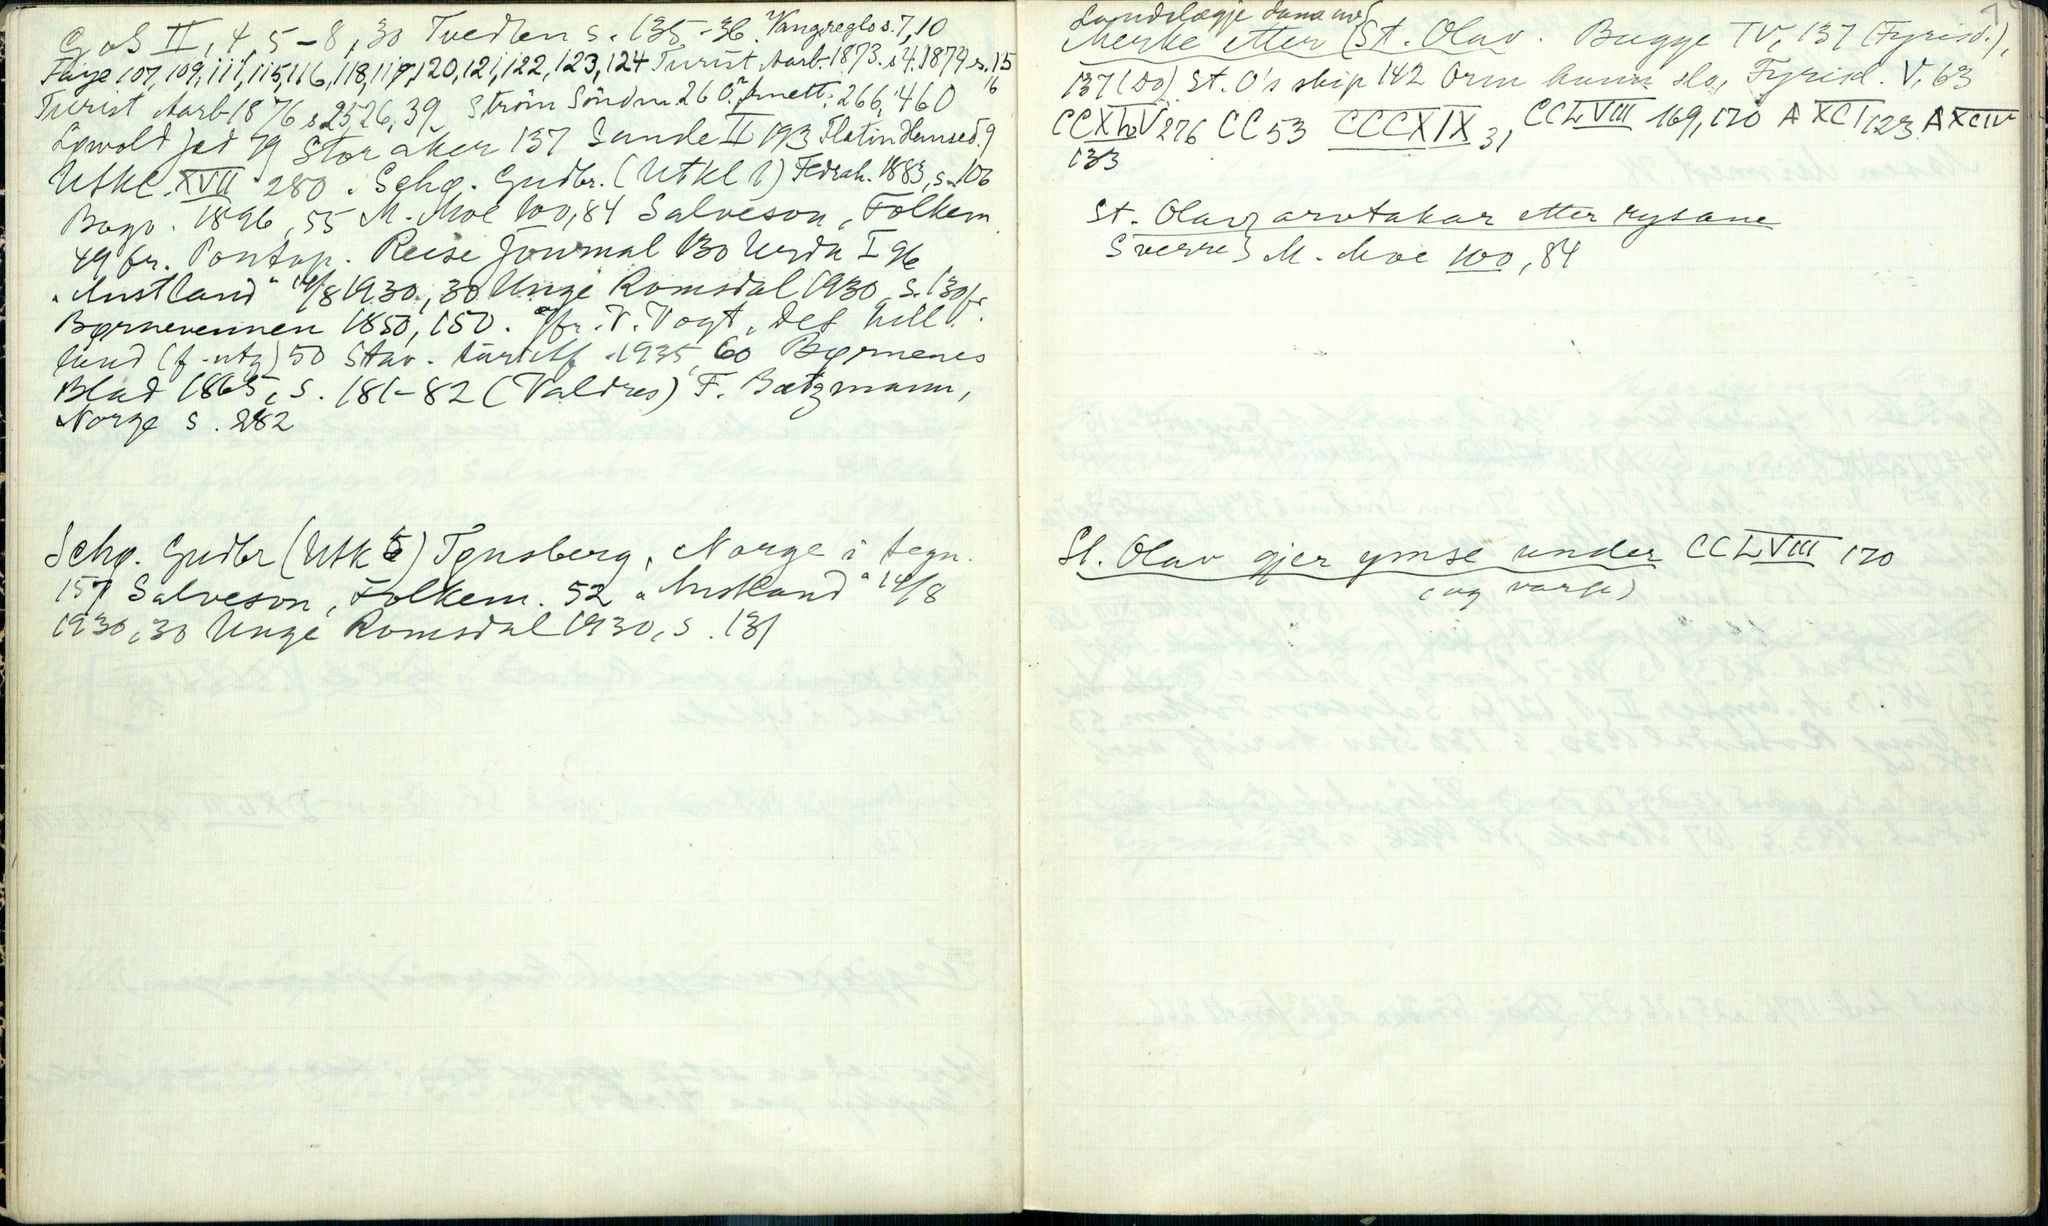 GoS II, 4 5-8, 30 Tvedten s. 135-36. Vangsreglo s. 7, 10
Faye 107, 109, 111, 115, 116, 118, 119, 120, 121, 122, 123, 124 Turist Aarb. 1873. s 4. 1874 s. 15
16
Turist Aarb 1876 s. 25 26, 39 Ström Söndm. 260. 266, 460
Lowold Jad 79 Storaker 137 Sande II 193 Flatin Hemsed. 9
Utkl. XVII 280. Schø. Gudbr. (Utkl 1) Fedrah. 1883, s. 106
Bogv. 1896, 55 M. Moe 100, 84 Salveson, Folkem.
49 fr. Pontop. Reise Journal 130 Urda I 96
"Austland" 14/8 1930, 30 Unge Romsdal 1930, s. 130 fr.
Børnevennen 1850, 150. Jfr. V. Vogt, Det hill.
lund (f. utg) 50 Stav. turistf. 1935, 60 Børnenes
Blad 1865, s. 181-82 (Valdres) F. Bætzmann,
Norge s. 282
Schø. Gudbr (Utk 6) Tønsberg, Norge i tegn.
157 Salveson, Folkem. 52 "Austland" 14/8
1930, 30 Unge Romsdal 1930, s. 131
Landslægje dana av
Merke etter (St. Olav. Bugge IV, 137 (Fyrisd.),
137 (Do) St. O's skip 142 Orm hann slo, Fyrisd. V, 63
276 CC 53 CCCXIX 31, CCLVIII 169, 170 A XCI 123 A XCIV
133
St. Olavs arvtakar etter rysane
Sverre) M. Moe 100, 84
St. Olav gjer ymse under CCLVIII 170
(og varsl)